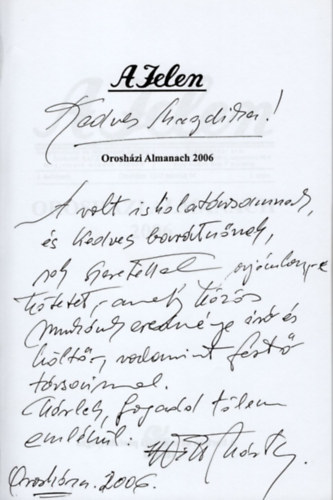 A Jelen
Kedves Magdika!
Orosházi Almanach 2006
A volt iskolatársamnak,
és kedves barátnőnek,
sok szeretettel
kötetet, amely közös
munkánk eredménye író és
költő, valamint festő
társaimmal.
Kérlek, fogadd tőlem
emlékül:
Orosháza. 2006.